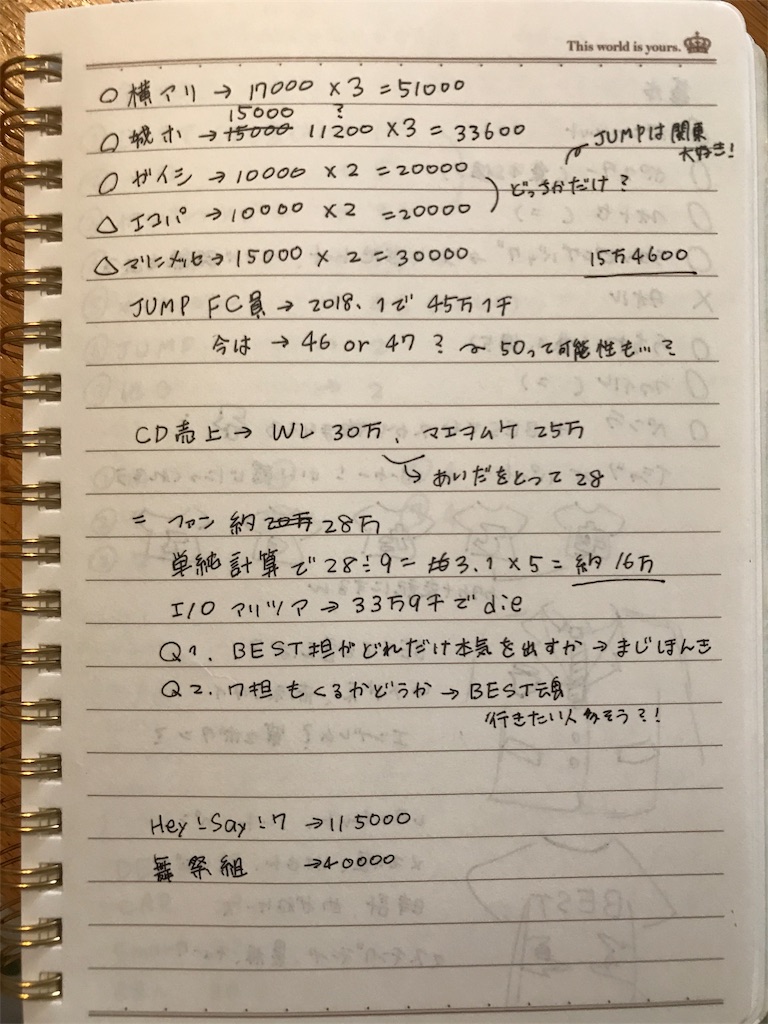 This world is yours.
○ 横アリ → 17000 × 3 = 51000
15000 ?
○ 城ホ → 15000 11200 × 3 = 33600
JUMPは関東大好き!
○ ガイシ → 10000 × 2 = 20000
どっちかだけ?
△ エコパ → 10000 × 2 = 20000
△ マリンメッセ → 15000 × 2 = 30000
15万4600
JUMP FC員 → 2018.1で 45万1千
今は → 46 or 47 ? 〜 50って可能性も…?
CD売上 → WL 30万、マエヲムケ 25万
↳ あいだをとって 28
= ファン 約 20万 28万
単純計算で 28÷9 = 約3.1 × 5 = 約16万
I/O アリツア → 33万9千で die
Q1. BEST担がどれだけ本気を出すか → まじほんき
Q2. 7担もくるかどうか → BEST魂
行きたい人多そう?!
Hey!Say!7 → 115000
舞祭組 → 40000